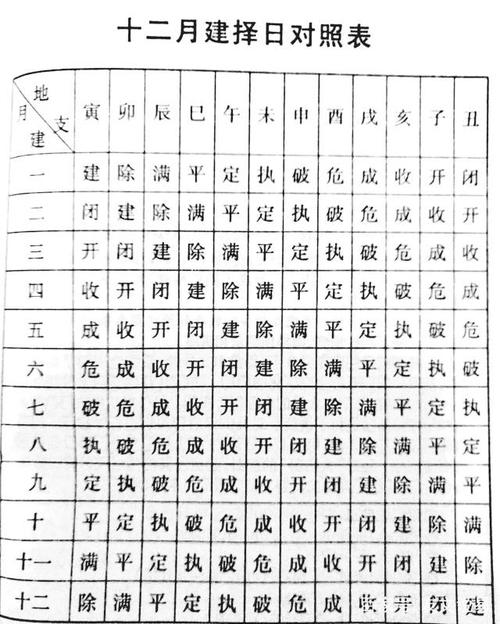 十二月建择日对照表
地支 月建 寅 卯 辰 巳 午 未 申 酉 戌 亥 子 丑
一 建 除 满 平 定 执 破 危 成 收 开 闭
二 闭 建 除 满 平 定 执 破 危 成 收 开
三 开 闭 建 除 满 平 定 执 破 危 成 收
四 收 开 闭 建 除 满 平 定 执 破 危 成
五 成 收 开 闭 建 除 满 平 定 执 破 危
六 危 成 收 开 闭 建 除 满 平 定 执 破
七 破 危 成 收 开 闭 建 除 满 平 定 执
八 执 破 危 成 收 开 闭 建 除 满 平 定
九 定 执 破 危 成 收 开 闭 建 除 满 平
十 平 定 执 破 危 成 收 开 闭 建 除 满
十一 满 平 定 执 破 危 成 收 开 闭 建 除
十二 除 满 平 定 执 破 危 成 收 开 闭 建